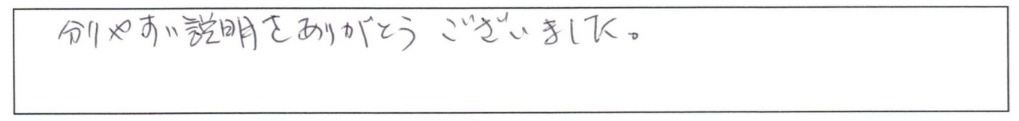 分りやすい説明をありがとうございました。